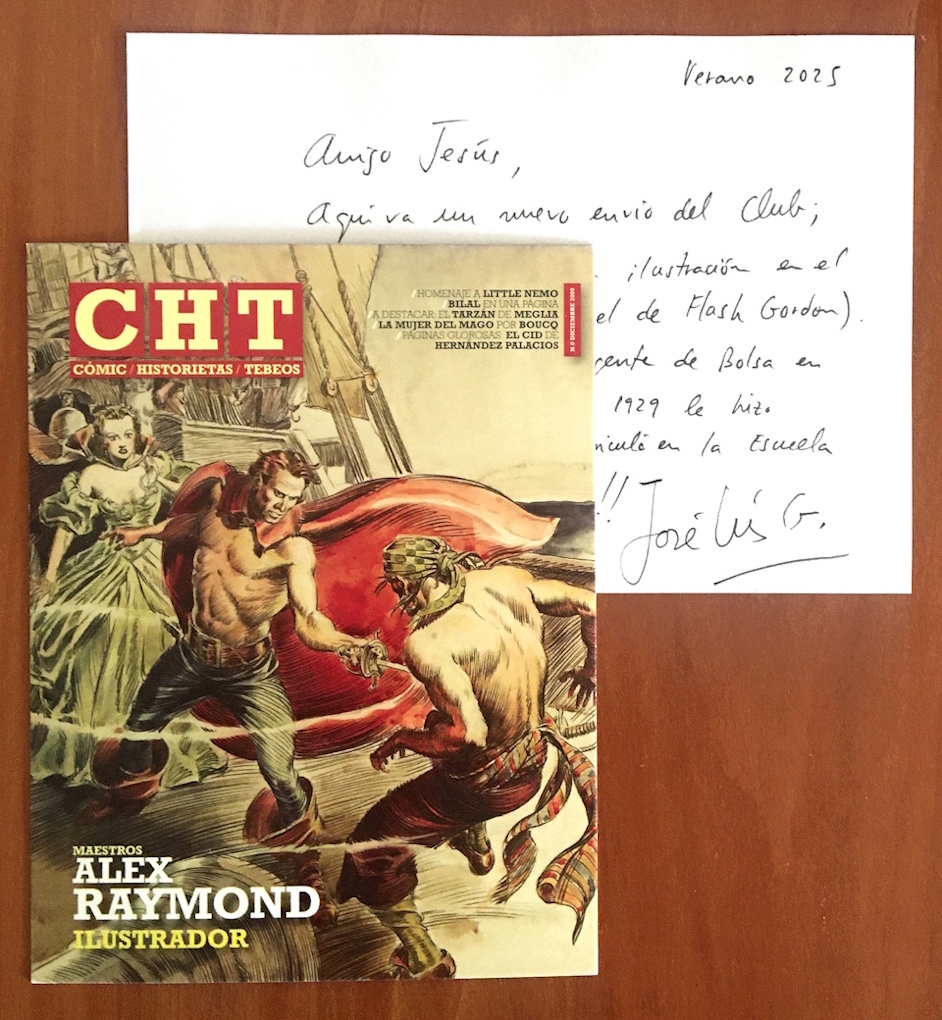 Verano 2025
Amigo Jesús,
Aquí va un nuevo envío del Club;
ilustración en el
el de Flash Gordon).
gente de Bolsa en
1929 le hizo
riculó en la Escuela
!! José Luis G.
CHT
CÓMIC / HISTORIETAS / TEBEOS
/HOMENAJE A LITTLE NEMO
/BILAL EN UNA PÁGINA
/A DESTACAR: EL TARZÁN DE MEGLIA
/LA MUJER DEL MAGO POR BOUCQ
/PÁGINAS GLORIOSAS: EL CID DE
HERNÁNDEZ PALACIOS
DICIEMBRE 2009
MAESTROS
ALEX
RAYMOND
ILUSTRADOR